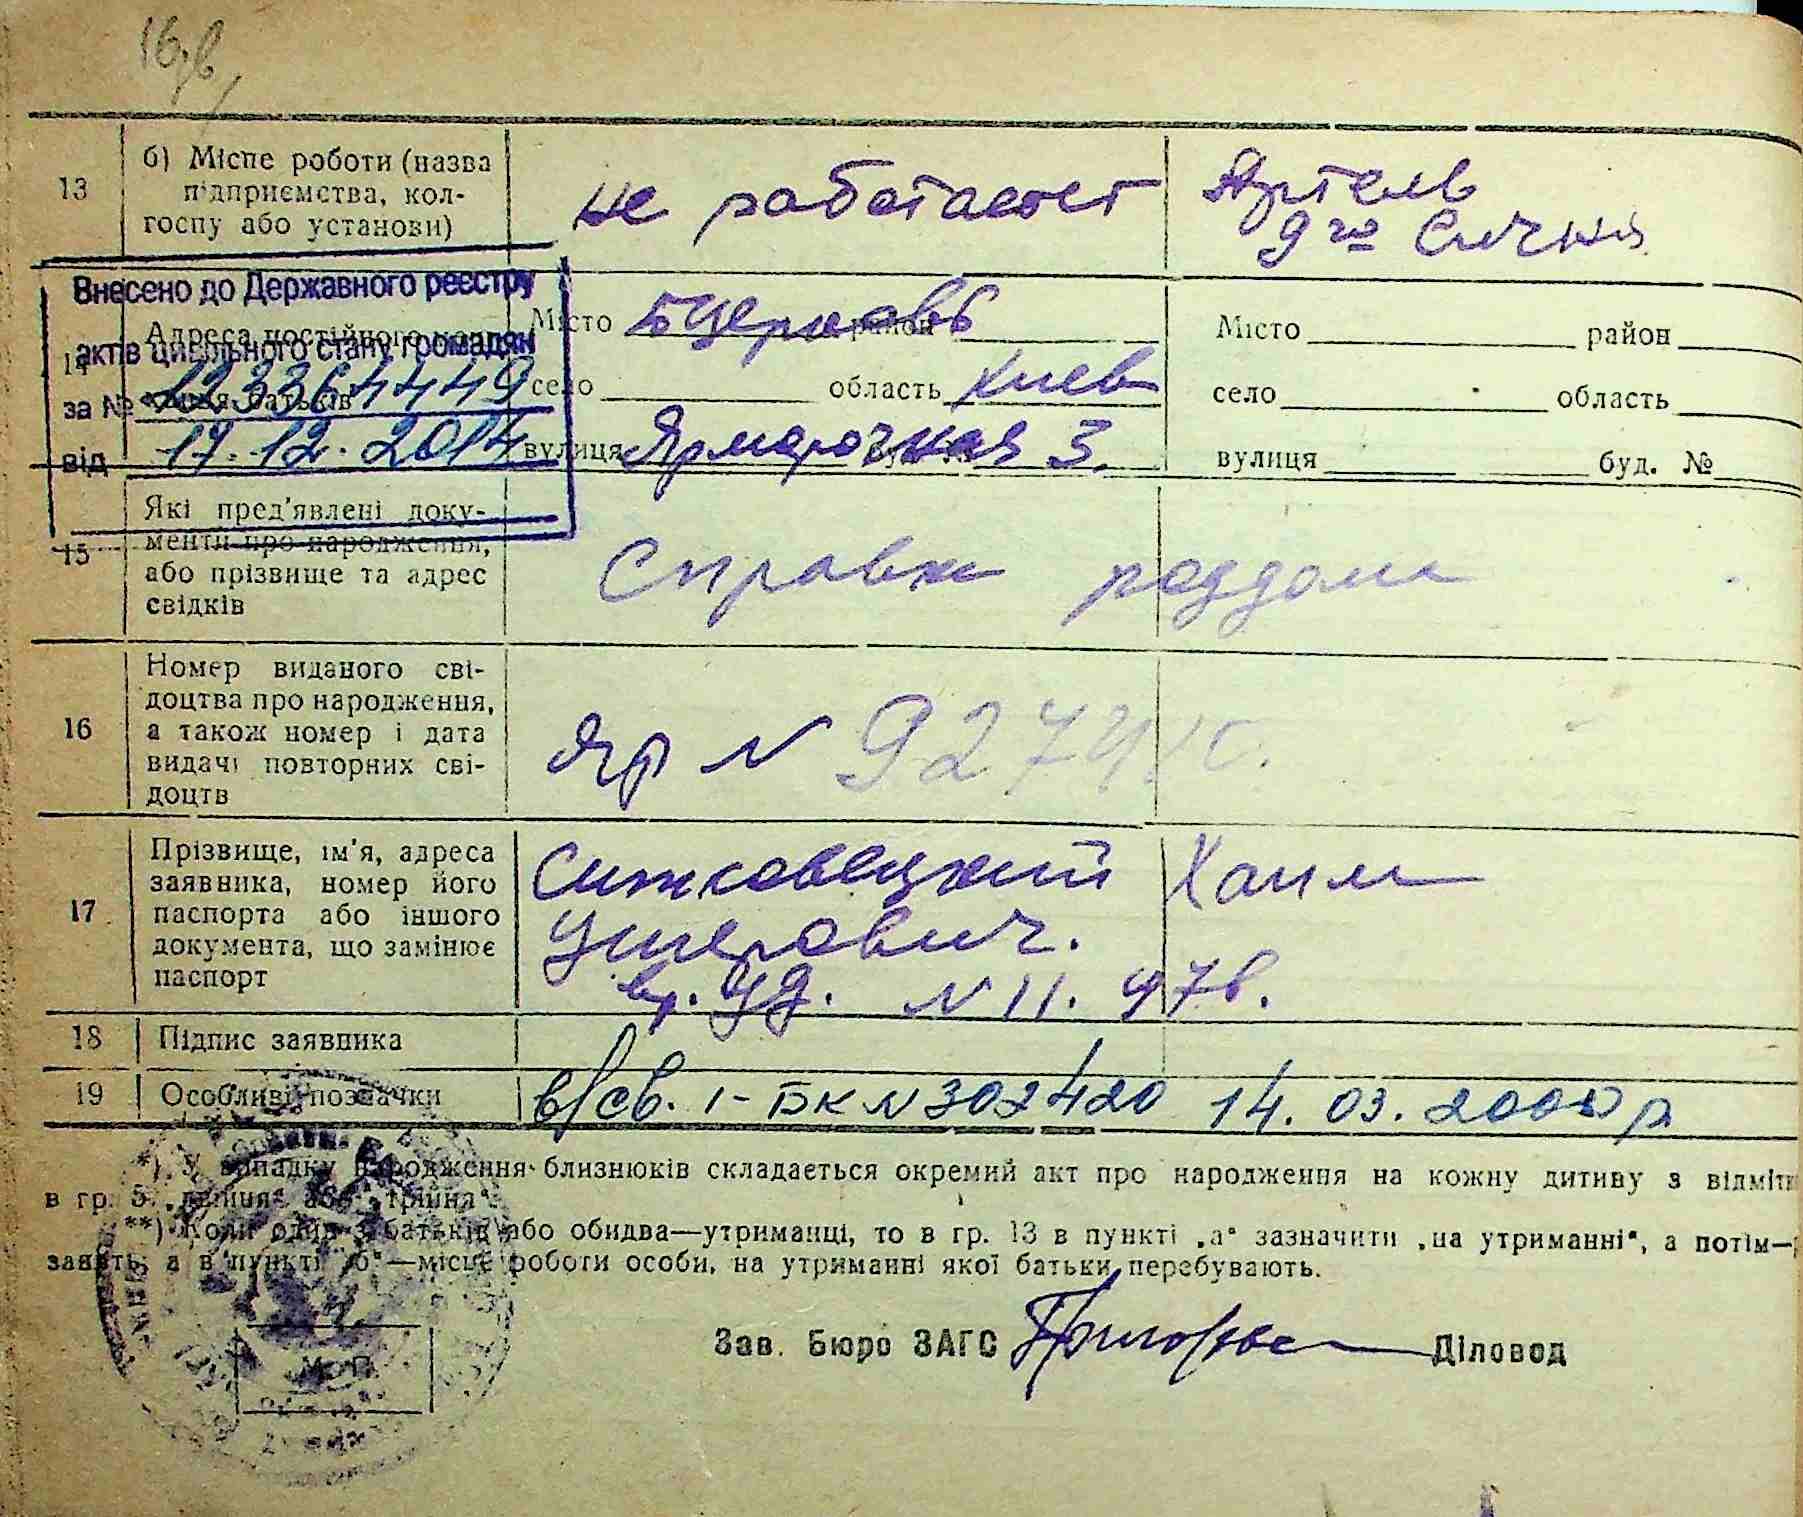 13
б) Місце роботи (назва
підприємства, кол-
госпу або установи)
не работает
Артель
9го Січня
Внесено до Державного реєстру
актів цивільного стану громадян
за №
від 17.12.2014
14
Адреса постійного
батьків
Місто Б Церковь район
село область Киев
вулиця Ярмарочная 3.
Місто район
село область
вулиця буд. №
15
Які пред'явлені доку-
менти про народження,
або прізвище та адрес
свідків
Справка роддома
16
Номер виданого сві-
доцтва про народження,
а також номер і дата
видачі повторних сві-
доцтв
N 9274
17
Прізвище, ім'я, адреса
заявника, номер його
паспорта або іншого
документа, що замінює
паспорт
Хаим
Ушерович.
вр. уд. N 11. 976.
18 Підпис заявника
19 Особливі позначки
в/св. I-БК N 302420 14.03.2000р
*) У випадку народження близнюків складається окремий акт про народження на кожну дитину з відміт
в гр. 5 „двійня“ або „трійня“.
**) Коли один з батьків або обидва—утриманці, то в гр. 13 в пункті „а“ зазначити „на утриманні“, а потім—
занять, а в пункті „б“—місце роботи особи, на утриманні якої батьки перебувають.
М. П.
Зав. Бюро ЗАГС Діловод